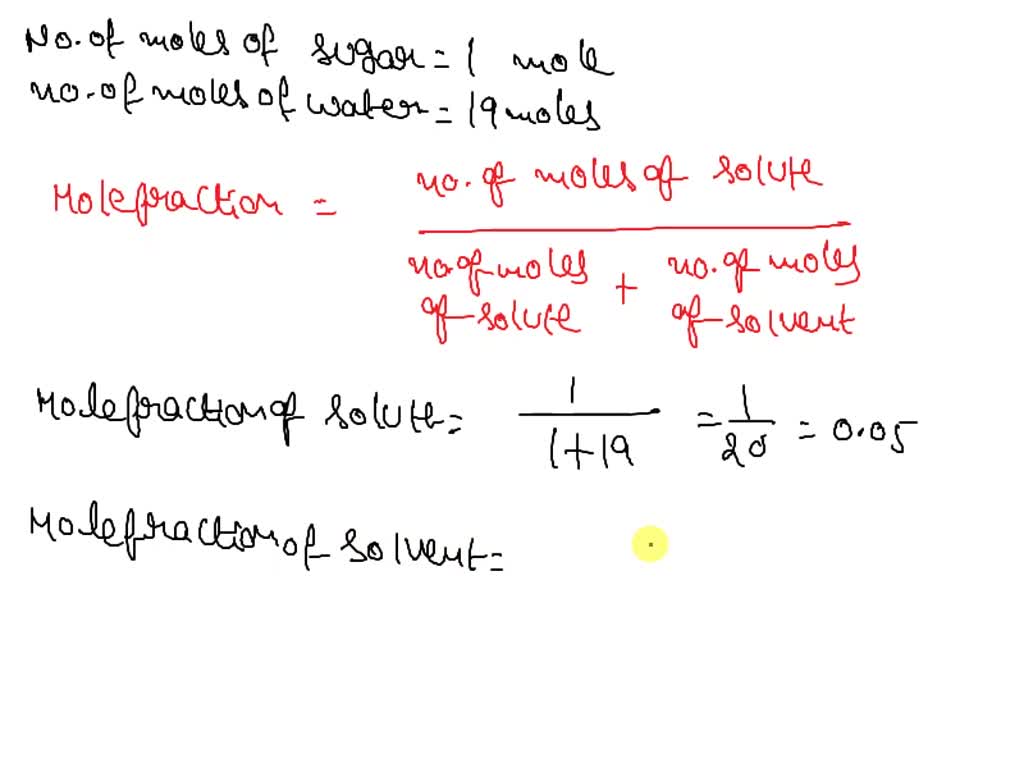 No. of moles of sugar = 1 mole
no. of moles of water = 19 moles
Molefraction = no. of moles of solute
no. of moles of solute + no. of moles of solvent
Molefraction of solute = 1 / 1+19 = 1/20 = 0.05
Molefraction of solvent =